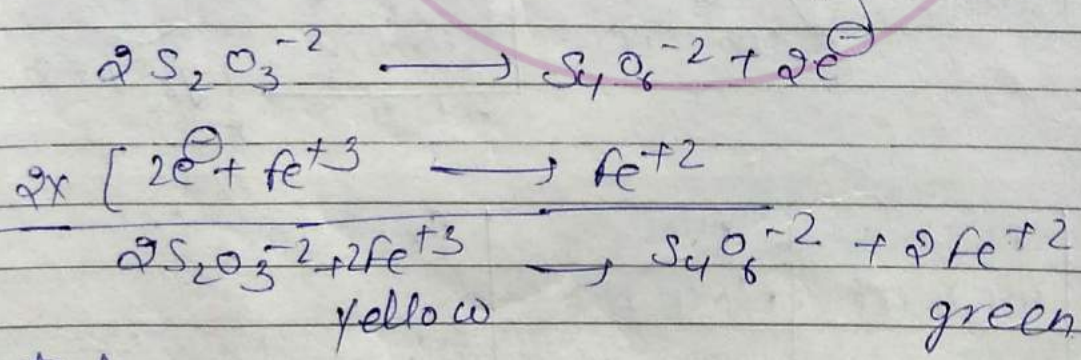 2S₂O₃⁻² ⟶ S₄O₆⁻² + 2e⊖
2x [ 2e⊖ + fe⁺³ ⟶ fe⁺²
2S₂O₃⁻² + 2fe⁺³ ⟶ S₄O₆⁻² + 2fe⁺²
yellow green